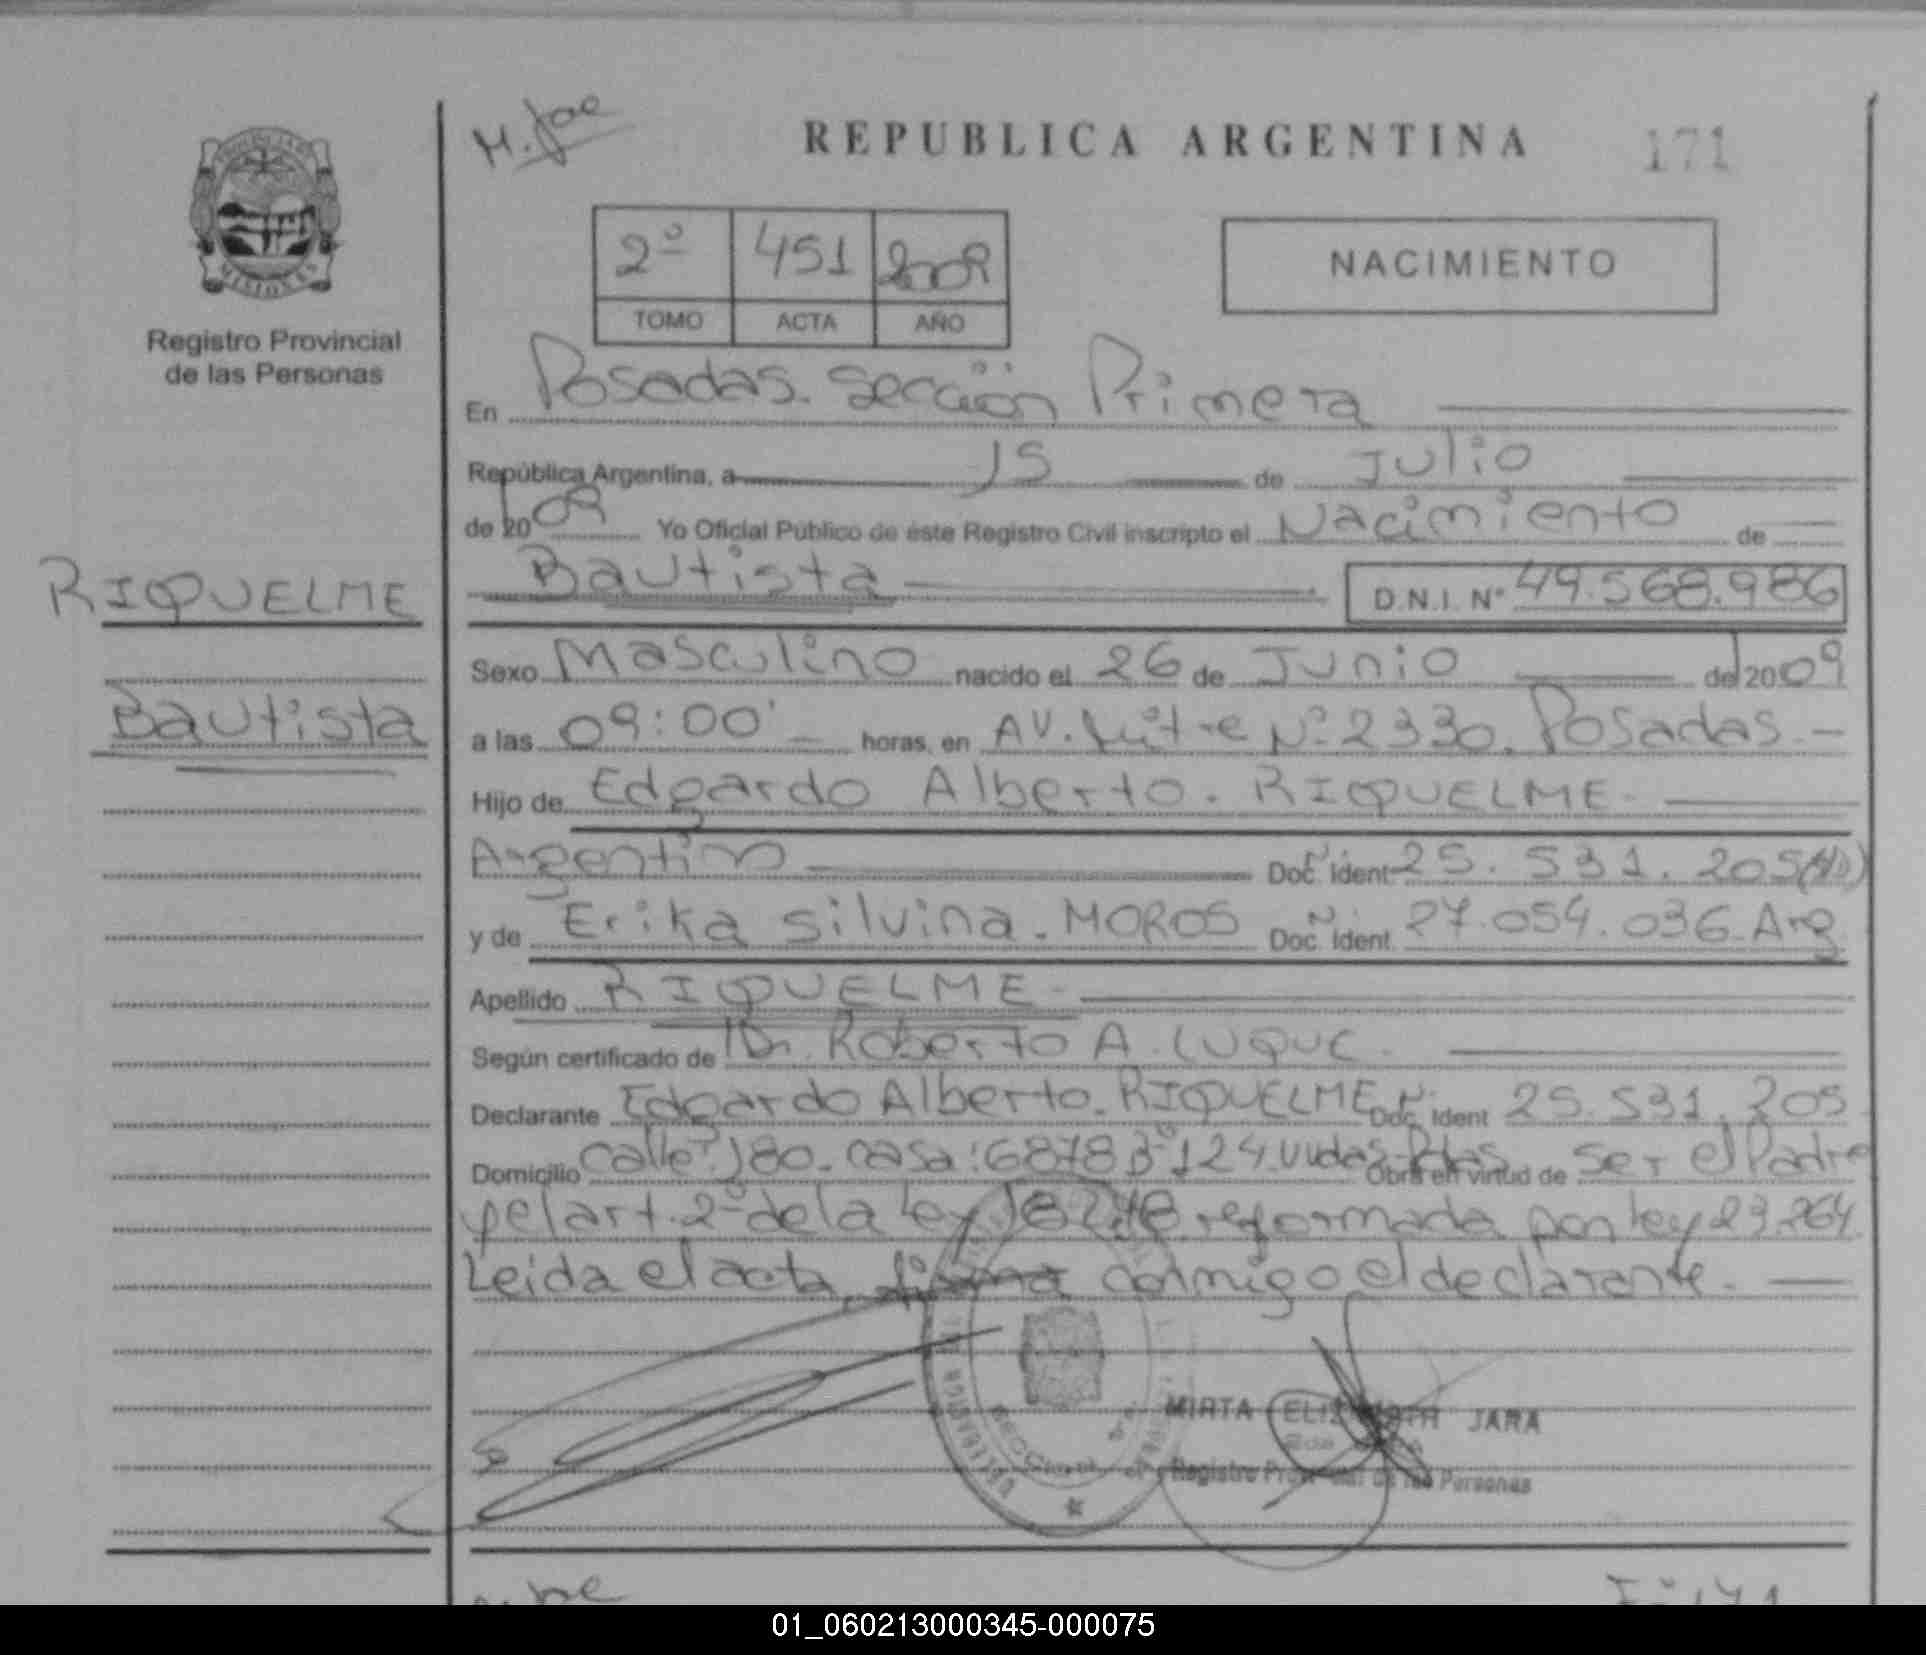 REPUBLICA ARGENTINA
171
2º 451 2009
TOMO ACTA AÑO
NACIMIENTO
MISIONES
Registro Provincial
de las Personas
En Posadas. Sección Primera
República Argentina, a 15 de Julio
de 2009 Yo Oficial Público de éste Registro Civil inscripto el Nacimiento de
Bautista D.N.I. Nº 49.568.986
RIQUELME
Bautista
Sexo Masculino nacido el 26 de Junio de 2009
a las 09:00' horas, en AV. Mitre Nº 2330. Posadas.-
Hijo de Edgardo Alberto. RIQUELME-
Argentino Doc. Ident 25.531.205
y de Erika Silvina. MOROS Doc. Ident. 27.054.036 Arg
Apellido RIQUELME-
Según certificado de Dr. Roberto A. LUQUE.
Declarante Edgardo Alberto. RIQUELME Doc. Ident 25.531.205
Domicilio Calle: 180. casa: 6878 Bº 124 Obra en virtud de Ser el Padre
y el art. 2º de la Ley 18248 reformada por ley 23.264.
Leida el acta, firma conmigo el declarante.
MIRTA ELIZABETH JARA
Registro Provincial de las Personas
01_060213000345-000075